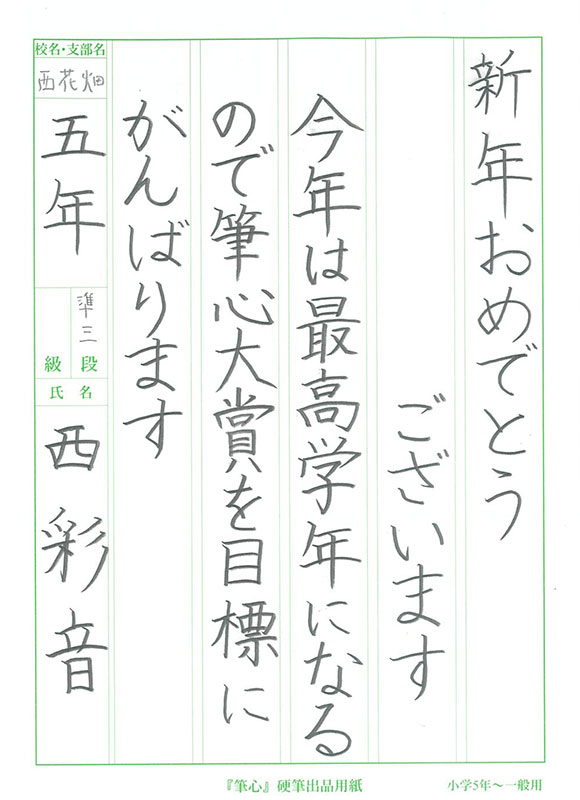 新年おめでとう
ございます
今年は最高学年になる
ので筆心大賞を目標に
がんばります
校名・支部名
西花畑
五年
準三
段
級
氏名
西彩音
『筆心』硬筆出品用紙
小学5年～一般用